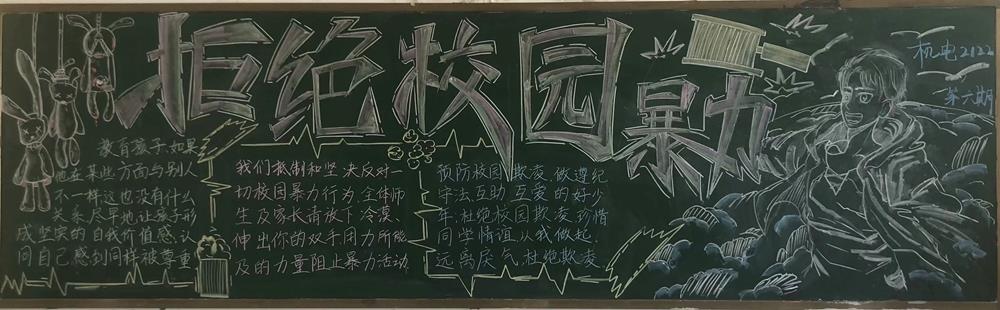 拒绝校园暴力
机电2122
第六期
教育孩子,如果
他在某些方面与别人
不一样这也没有什么
关系,尽早地让孩子形
成坚实的自我价值感,认
同自己感到同样被尊重
我们抵制和坚决反对一
切校园暴力行为,全体师
生及家长请放下冷漠、
伸出你的双手用力所能
及的力量阻止暴力活动
预防校园欺凌做遵纪
守法,互助互爱的好少
年,杜绝校园欺凌,珍惜
同学情谊,从我做起,
远离戾气杜绝欺凌